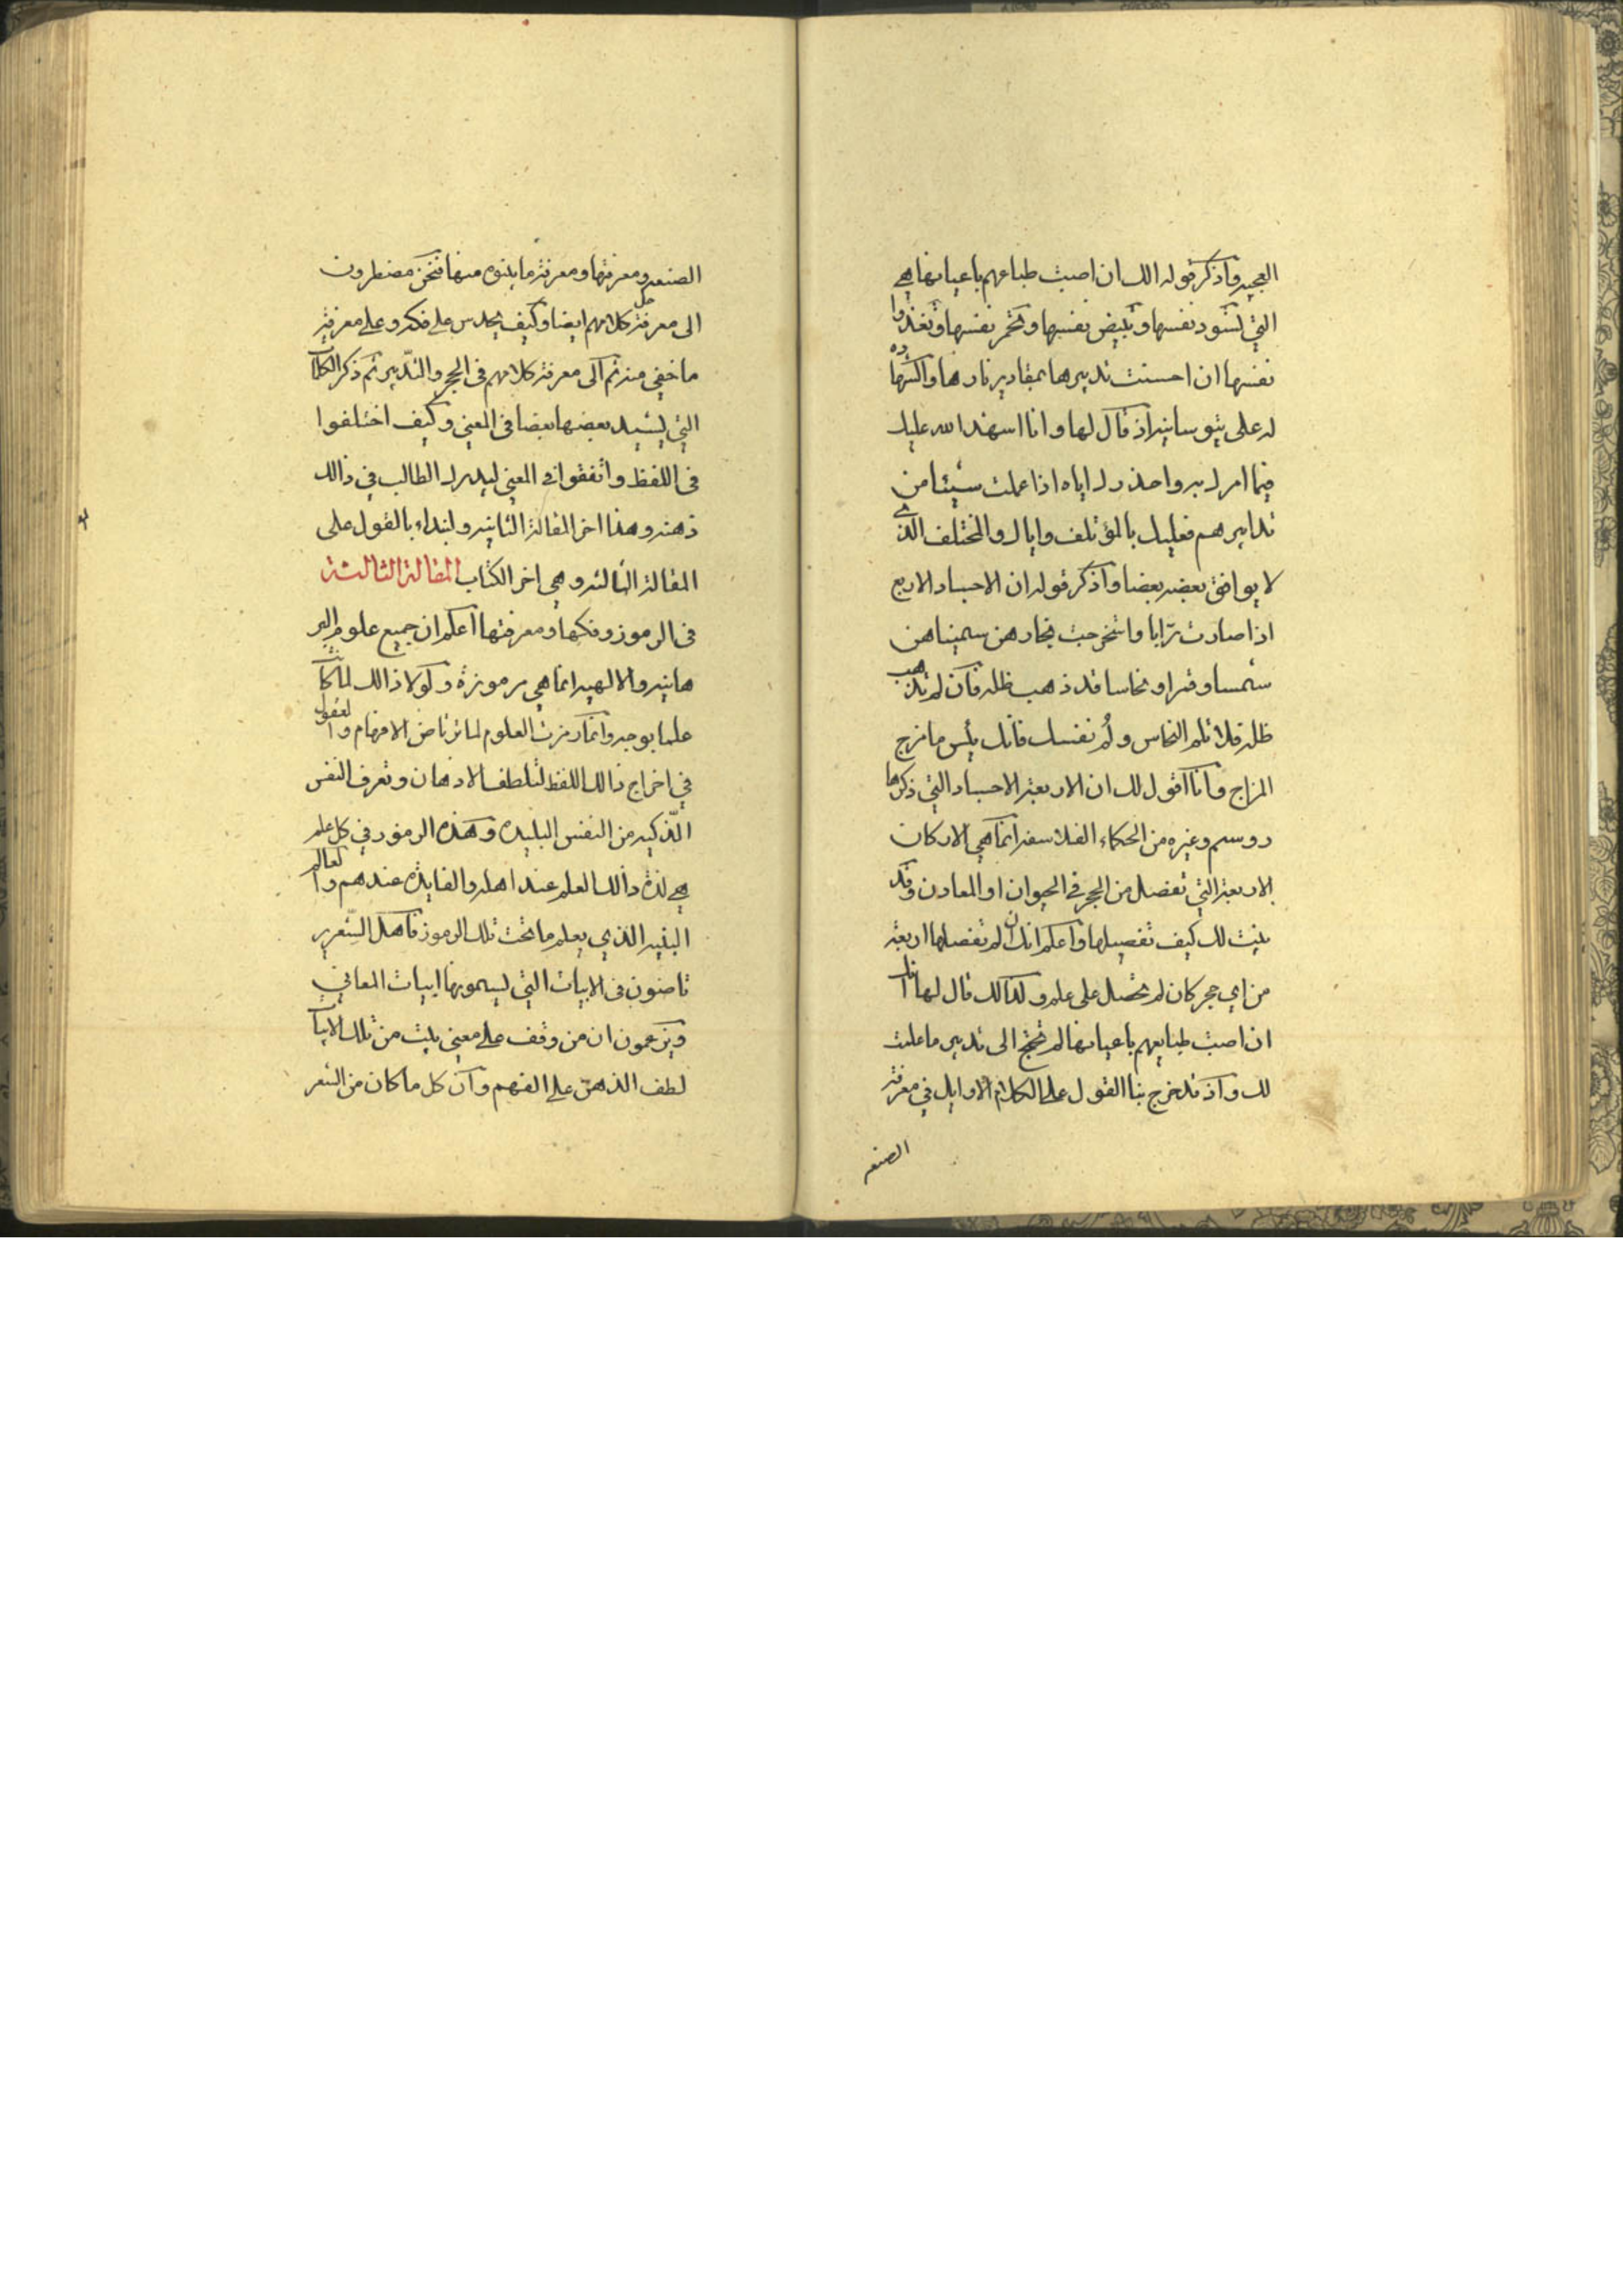 العجيبه واذكر قوله الك ان اصبت طباعهم باعيانها هي
التي تسود نفسها وتبيض نفسها وتحمر نفسها وتغذوا
نفسها ان احسنت تدبيرها بمقادير نارها واكثرها
له على ثيوسانيه اذ قال لها وانا اشهد الله عليك
فيما امرك به واحذرك اياه اذا عملت شيئا من
تدابيرهم فعليك بالمؤتلف واياك والمختلف الذى
لا يوافق بعضه بعضا واذكر قوله ان الاجساد الاربع
اذا صارت ترابا واستخرجت بخارهن سميناهن
شمسا وقمرا ونحاسا قد ذهب ظله فان لم يذهب
ظله فلا تلم النحاس ولم نفسك فانك بئس ما تزج
المزاج وانا اقول لك ان الاربعة الاجساد التي ذكرها
روسم وغيره من الحكماء الفلاسفه انما هي الاركان
الاربعة التي تفصل من الحجر في الحيوان او المعادن وقد
بينت لك كيف تفصيلها واعلم انك ان لم تفصلها اربعة
من اي حجر كان لم تحصل على علم وكذالك قال لها انك
ان اصبت طبايعهم باعيانها لم تحتج الى تدبير ما علمت
لك واذ قد خرج بنا القول على الكلام الاوايل في معرفة
الصنعه
الصنعه ومعرفتها ومعرفة ما ينوه منها فنحن مضطرون
الى معرفة حل كلامهم ايضا وكيف يحدس على فكه وعلى معرفة
ما خفي منه ثم الى معرفة كلامهم فى الحجر والتدبير ثم ذكر الكلام
التي يشيد بعضها بعضا فى المعنى وكيف اختلفوا
فى اللفظ واتفقوا في المعني ليدرك الطالب في ذالك
ذهنه وهذا اخر المقالة الثانيه ولنبداء بالقول على
المقالة الثالثه وهي اخر الكتاب المقالة الثالثة
فى الرموز وفكها ومعرفتها اعلم ان جميع علوم البر
هانيه والالهيه انما هي مرموزة ولولا ذالك لما كان
علما بوجه وانما رمزت العلوم لما ترتاض الافهام والعقول
في اخراج ذالك اللفظ لتلطف الاذهان وتعرف النفس
الذكيه من النفس البليده وهذه الرموز في كل علم
هي لذة ذالك العلم عند اهله والفايدة عندهم والعالم
البنيه الذي يعلم ما تحت تلك الرموز فاهل الشعر ير
تاضون فى الابيات التي يسمونها ابيات المعاني
ويزعمون ان من وقف على معني بيت من تلك الابيات
لطف الذهن على الفهم وان كل ما كان من الشعر